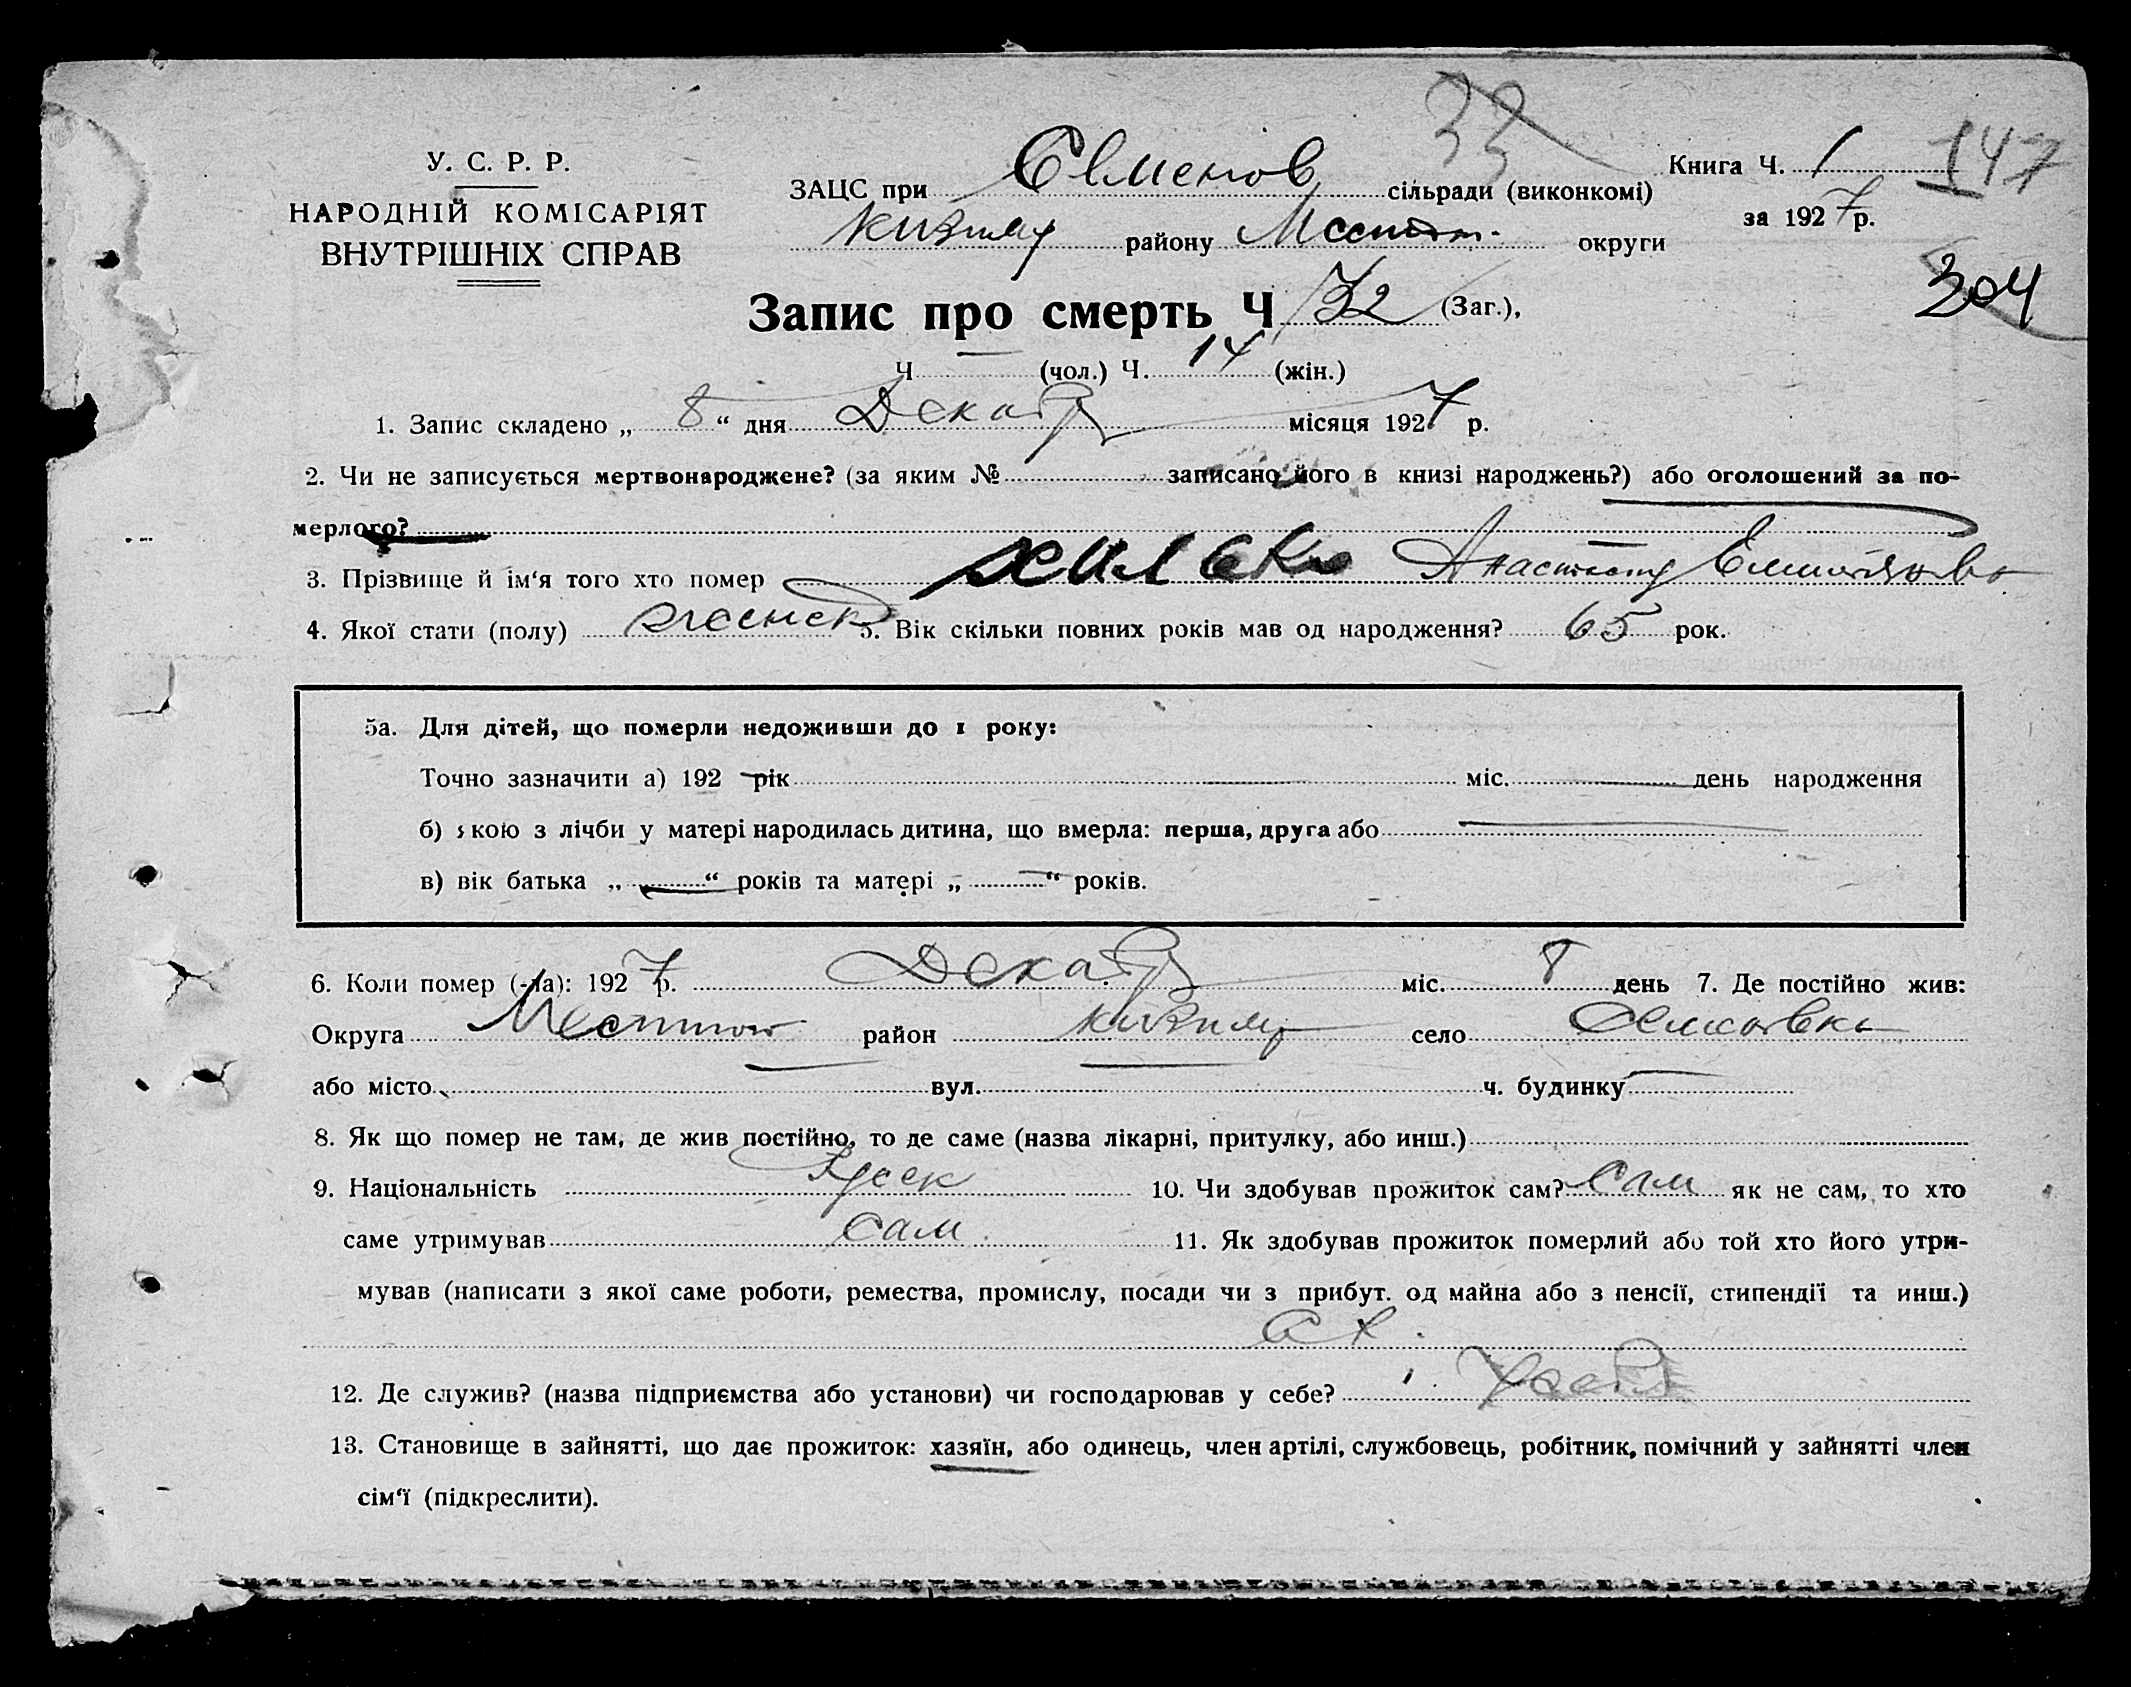 У. С. Р. Р.
НАРОДНІЙ КОМІСАРІЯТ
ВНУТРІШНІХ СПРАВ
33
Книга Ч. 1 147
ЗАЦС при Семенов сільради (виконкомі)
за 1927 р.
району округи
304
Запис про смерть Ч 32 (Заг.),
Ч — (чол.) Ч. 14 (жін.)
1. Запис складено „ 8 “ дня Декабр місяця 1927 р.
2. Чи не записується мертвонароджене? (за яким № записано його в книзі народжень?) або оголошений за по-
мерлого?
3. Прізвище й ім'я того хто помер
4. Якої стати (полу) женск 5. Вік скільки повних років мав од народження? 65 рок.
5а. Для дітей, що померли недоживши до 1 року:
Точно зазначити а) 192 рік міс. день народження
б) якою з лічби у матері народилась дитина, що вмерла: перша, друга або
в) вік батька „ “ років та матері „ “ років.
6. Коли помер (-ла): 1927 р. Декабр міс. 8 день 7. Де постійно жив:
Округа район село
або місто вул. ч. будинку
8. Як що помер не там, де жив постійно, то де саме (назва лікарні, притулку, або инш.)
9. Національність Греск 10. Чи здобував прожиток сам? Сам як не сам, то хто
саме утримував сам 11. Як здобував прожиток померлий або той хто його утри-
мував (написати з якої саме роботи, ремества, промислу, посади чи з прибут. од майна або з пенсії, стипендії та инш.)
С Х.
12. Де служив? (назва підприємства або установи) чи господарював у себе?
13. Становище в зайнятті, що дає прожиток: хазяїн, або одинець, член артілі, службовець, робітник, помічний у зайнятті член
сім'ї (підкреслити).